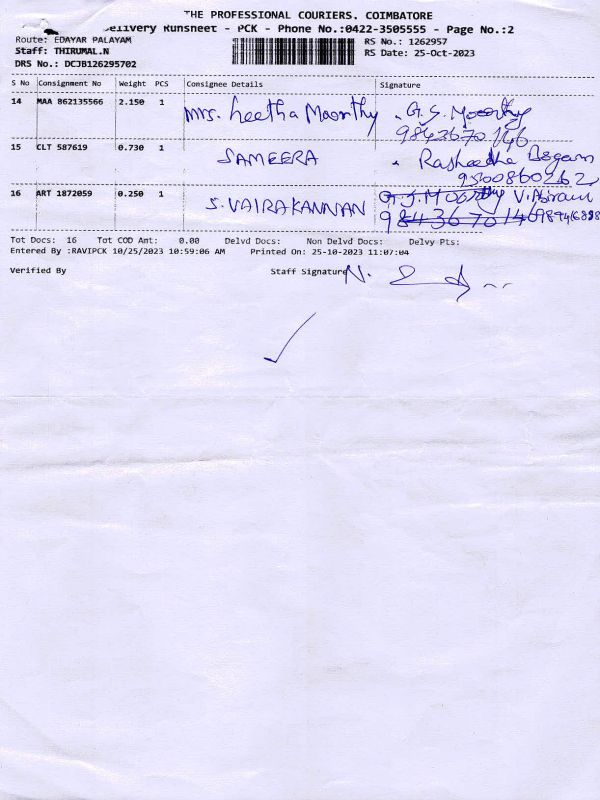 THE PROFESSIONAL COURIERS. COIMBATORE
Delivery Runsheet - PCK - Phone No.:0422-3505555 - Page No.:2
Route: EDAYAR PALAYAM RS No.: 1262957
Staff: THIRUMAL.N RS Date: 25-Oct-2023
DRS No.: DCJB126295702
S No Consignment No Weight PCS Consignee Details Signature
14 MAA 862135566 2.150 1 Mrs. Geetha Moorthy G.S. Moorthy
9843670146
15 CLT 587619 0.730 1 SAMEERA Rasheedha Begam
9500860262
16 ART 1872059 0.250 1 S. VAIRAKANNAN G.S. Moorthy V.Abirami
9843670146
Tot Docs: 16 Tot COD Amt: 0.00 Delvd Docs: Non Delvd Docs: Delvy Pts:
Entered By :RAVIPCK 10/25/2023 10:59:06 AM Printed On: 25-10-2023 11:07:04
Verified By Staff Signature N.